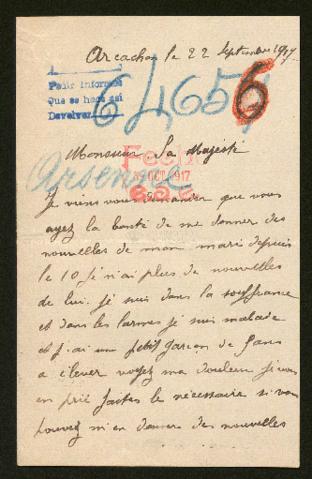 Arcachon le 22 Septembre 1917
Pedir informes
Que se hace así
Devolver
64657
6
Monsieur Sa Majesté
Fecha
OCT. 1917
Je viens vous demander que vous
ayez la bonté de me donner des
nouvelles de mon mari depuis
le 10 je n'ai plus de nouvelles
de lui. je suis dans la souffrance
et dans les larmes je suis malade
et j'ai un petit garcon de 5 ans
a élever voyez ma douleur je vous
en prie faites le nécessaire si vous
pouvez m'en donner des nouvelles